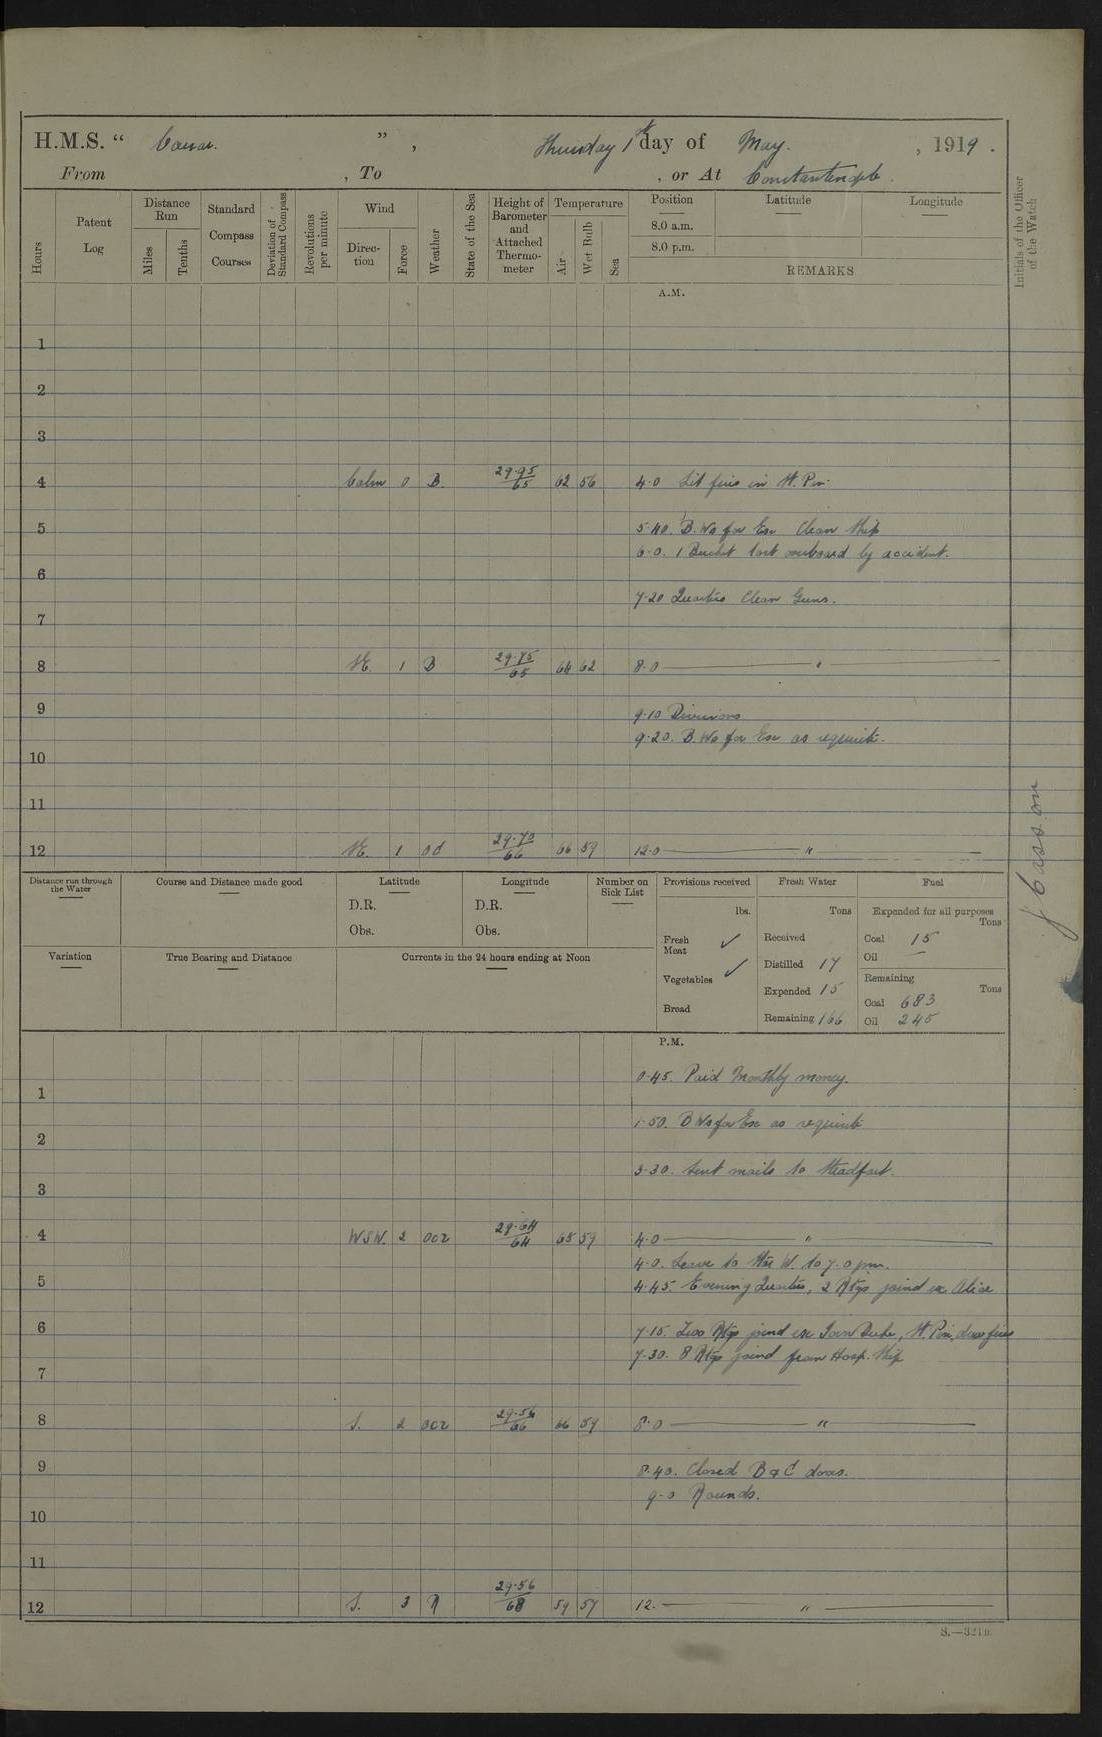 H.M.S. “ Caesar. ” , Thursday 1st day of May. , 1919 .
From , To , or At Constantinople .
Hours
Patent Log
Distance Run
Miles
Tenths
Standard Compass Courses
Deviation of Standard Compass
Revolutions per minute
Wind
Direc-tion
Force
Weather
State of the Sea
Height of Barometer and Attached Thermo-meter
Temperature
Air
Wet Bulb
Sea
Position Latitude Longitude
8.0 a.m.
8.0 p.m.
REMARKS
Initials of the Officer of the Watch
A.M.
1
2
3
4 Calm 0 B. 29.95/65 62 56 4.0 Lit fires in St. Pin.
5 5.40. B.Ws for Ex Clean Ship
6.0. 1 Bucket lost overboard by accident.
6
7.20 Quarters Clean Guns.
7
8 NE. 1 B 29.75/65 64 62 8.0 "
9 9.10 Divisions
9.20. B.Ws for Ex as requisite.
10
11
12 NE. 1 od 29.70/66 66 59 12.0 "
J Casson
Distance run through the Water
Course and Distance made good
Latitude
D.R.
Obs.
Longitude
D.R.
Obs.
Number on Sick List
Provisions received
lbs.
Fresh Meat ✓
Vegetables ✓
Bread
Fresh Water
Tons
Received
Distilled 17
Expended 15
Remaining 166
Fuel
Expended for all purposes
Tons
Coal 15
Oil —
Remaining
Tons
Coal 683
Oil 245
Variation
True Bearing and Distance
Currents in the 24 hours ending at Noon
P.M.
0.45. Paid Monthly money.
1
1.50. B Ws for Ex as requisite
2
3.30. Sent mails to Steadfast.
3
4 WSW. 2 ocr 29.64/64 68 59 4.0 "
4.0. Leave to Stbd W. to 7.0 pm.
5 4.45. Evening Quarters, 2 Rtgs joined ex Alice
6 7.15. Two Rtgs joined ex Iron Duke, St. Pin. drew fires
7.30. 8 Rtgs joined from Hosp. Ship
7
8 S. 2 ocr 29.56/66 66 59 8.0 "
9 8.40. Closed B & C doors.
9.0 Rounds.
10
11
12 S. 3 R 29.56/68 59 57 12. "
S.—321B.